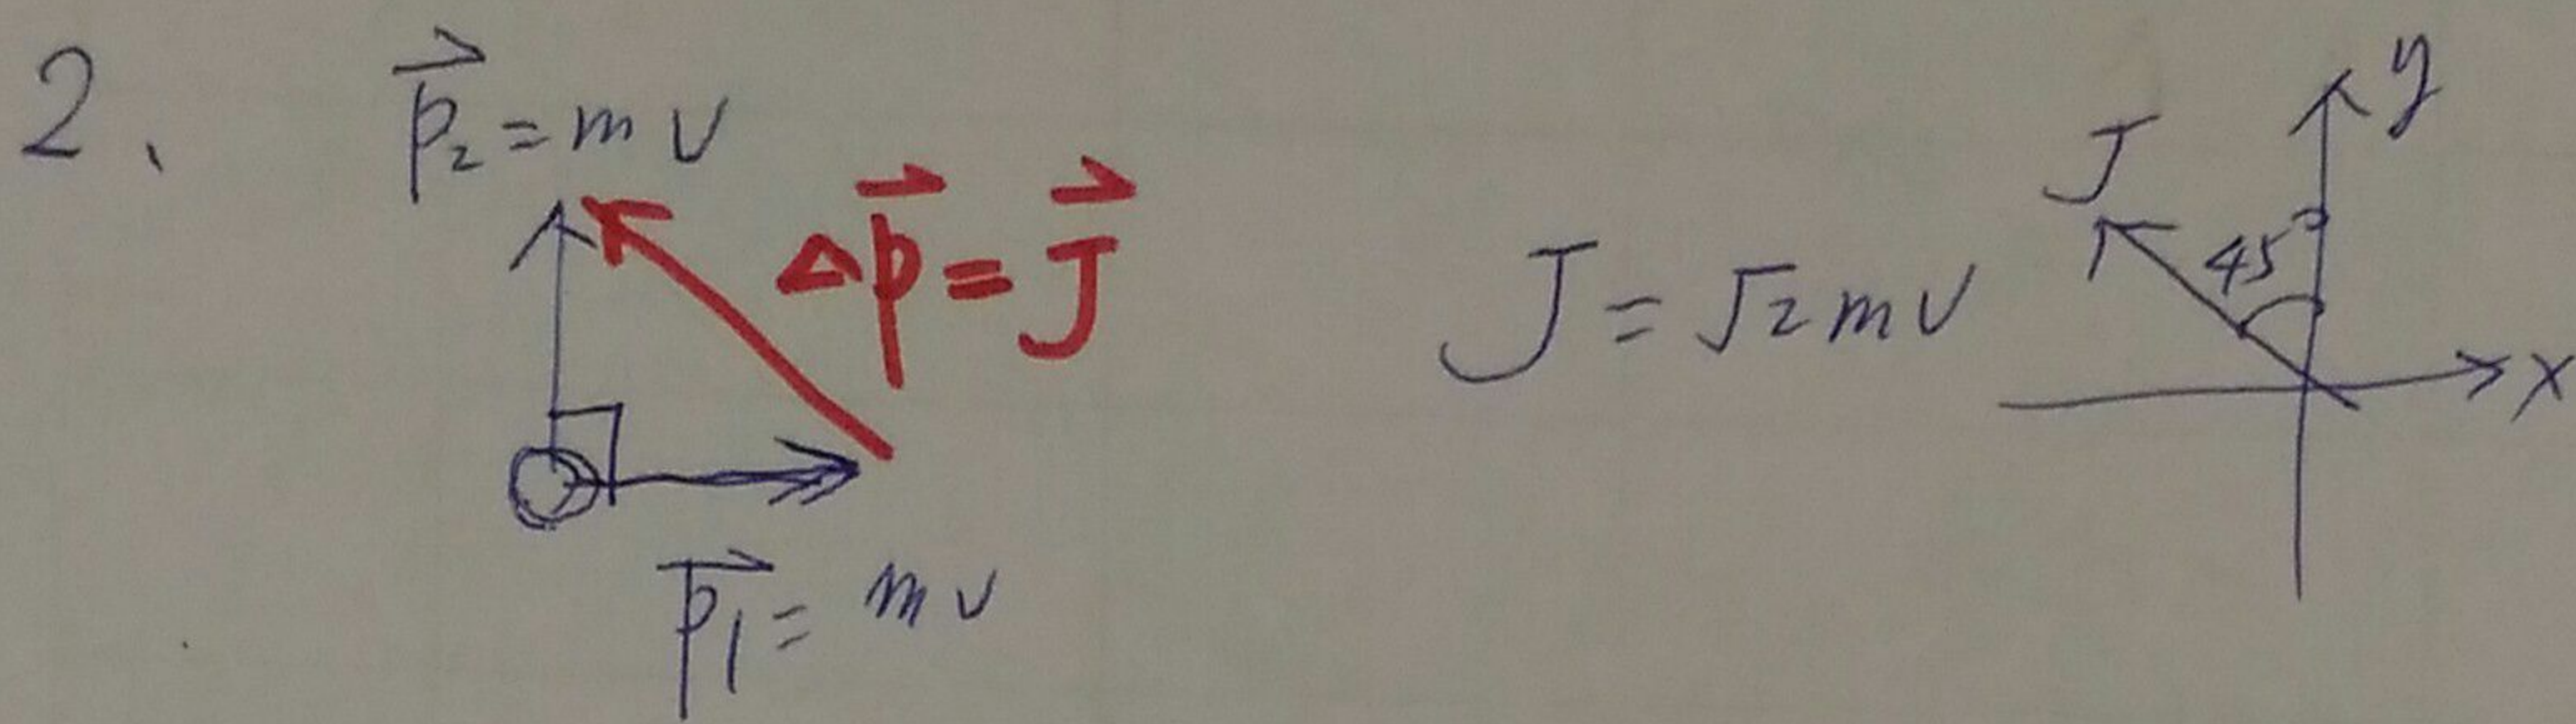 2、
p⃗₂ = mv
Δp⃗ = J⃗
p⃗₁ = mv
J = √2mv
J
45°
y
x